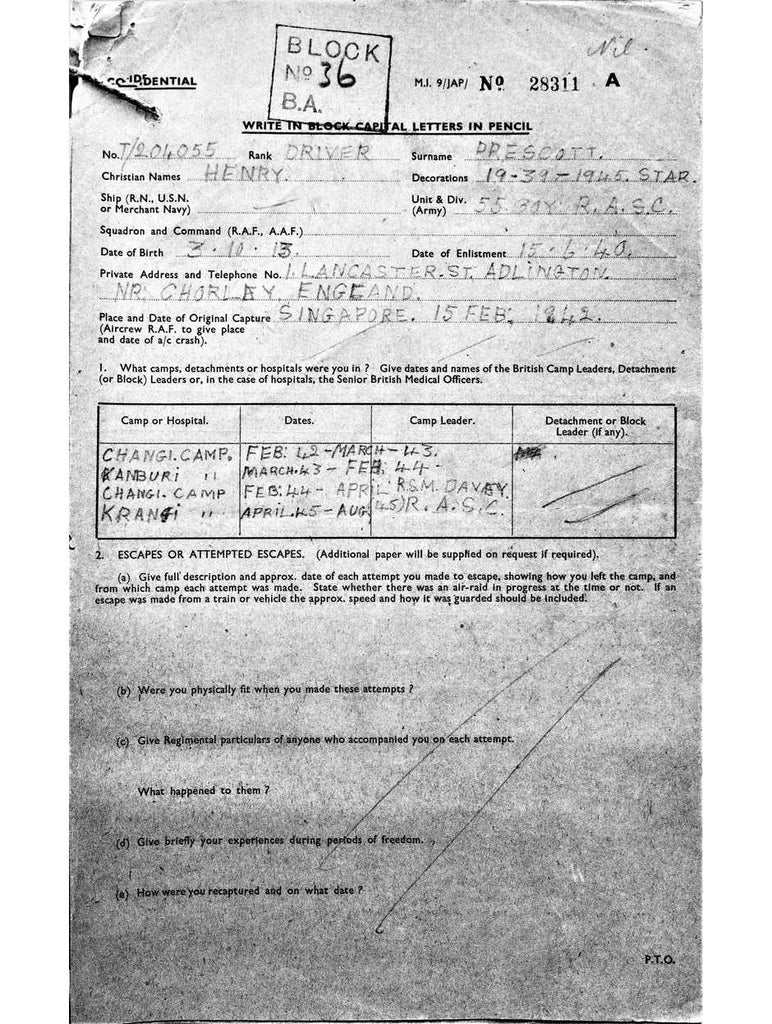 Nil.
BLOCK
Nº 36
B.A.
CONFIDENTIAL
M.I. 9/JAP/ Nº 28311 A
WRITE IN BLOCK CAPITAL LETTERS IN PENCIL
No. T/204055 Rank DRIVER Surname PRESCOTT.
Christian Names HENRY. Decorations 19-39-1945. STAR.
Ship (R.N., U.S.N. or Merchant Navy)
Unit & Div. (Army) 55 R.A.S.C.
Squadron and Command (R.A.F., A.A.F.)
Date of Birth 3.10.13. Date of Enlistment 15.6.40.
Private Address and Telephone No. 1. LANCASTER.ST. ADLINGTON.
NR: CHORLEY, ENGLAND.
Place and Date of Original Capture SINGAPORE. 15 FEB; 1942.
(Aircrew R.A.F. to give place
and date of a/c crash).
1. What camps, detachments or hospitals were you in ? Give dates and names of the British Camp Leaders, Detachment
(or Block) Leaders or, in the case of hospitals, the Senior British Medical Officers.
Camp or Hospital. Dates. Camp Leader. Detachment or Block
Leader (if any).
CHANGI. CAMP. FEB: 42-MARCH-43.
KANBURI " MARCH.43 - FEB; 44-
CHANGI. CAMP FEB:44 - APRIL R.S.M. DAVEY.
KRANGI " APRIL.45-AUG 45) R.A.S.C.
2. ESCAPES OR ATTEMPTED ESCAPES. (Additional paper will be supplied on request if required).
(a) Give full description and approx. date of each attempt you made to escape, showing how you left the camp, and
from which camp each attempt was made. State whether there was an air-raid in progress at the time or not. If an
escape was made from a train or vehicle the approx. speed and how it was guarded should be included.
(b) Were you physically fit when you made these attempts ?
(c) Give Regimental particulars of anyone who accompanied you on each attempt.
What happened to them ?
(d) Give briefly your experiences during periods of freedom.
(e) How were you recaptured and on what date ?
P.T.O.